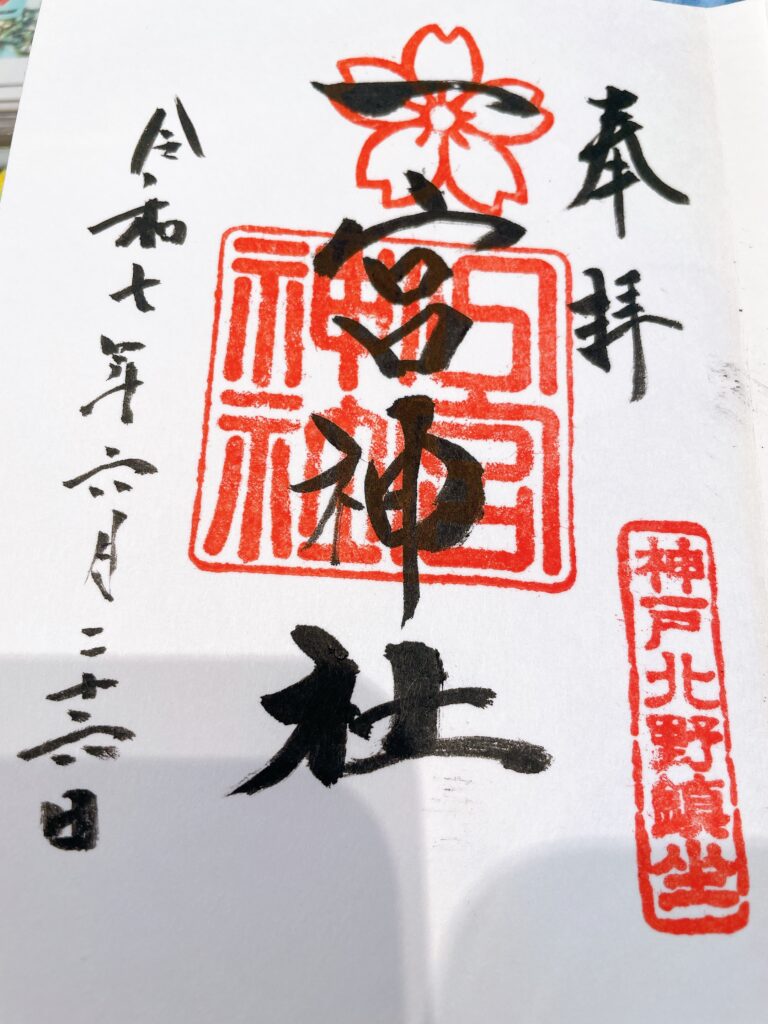 奉拝
神戸北野鎮坐
一宮神社
一宮神社
令和七年六月二十六日